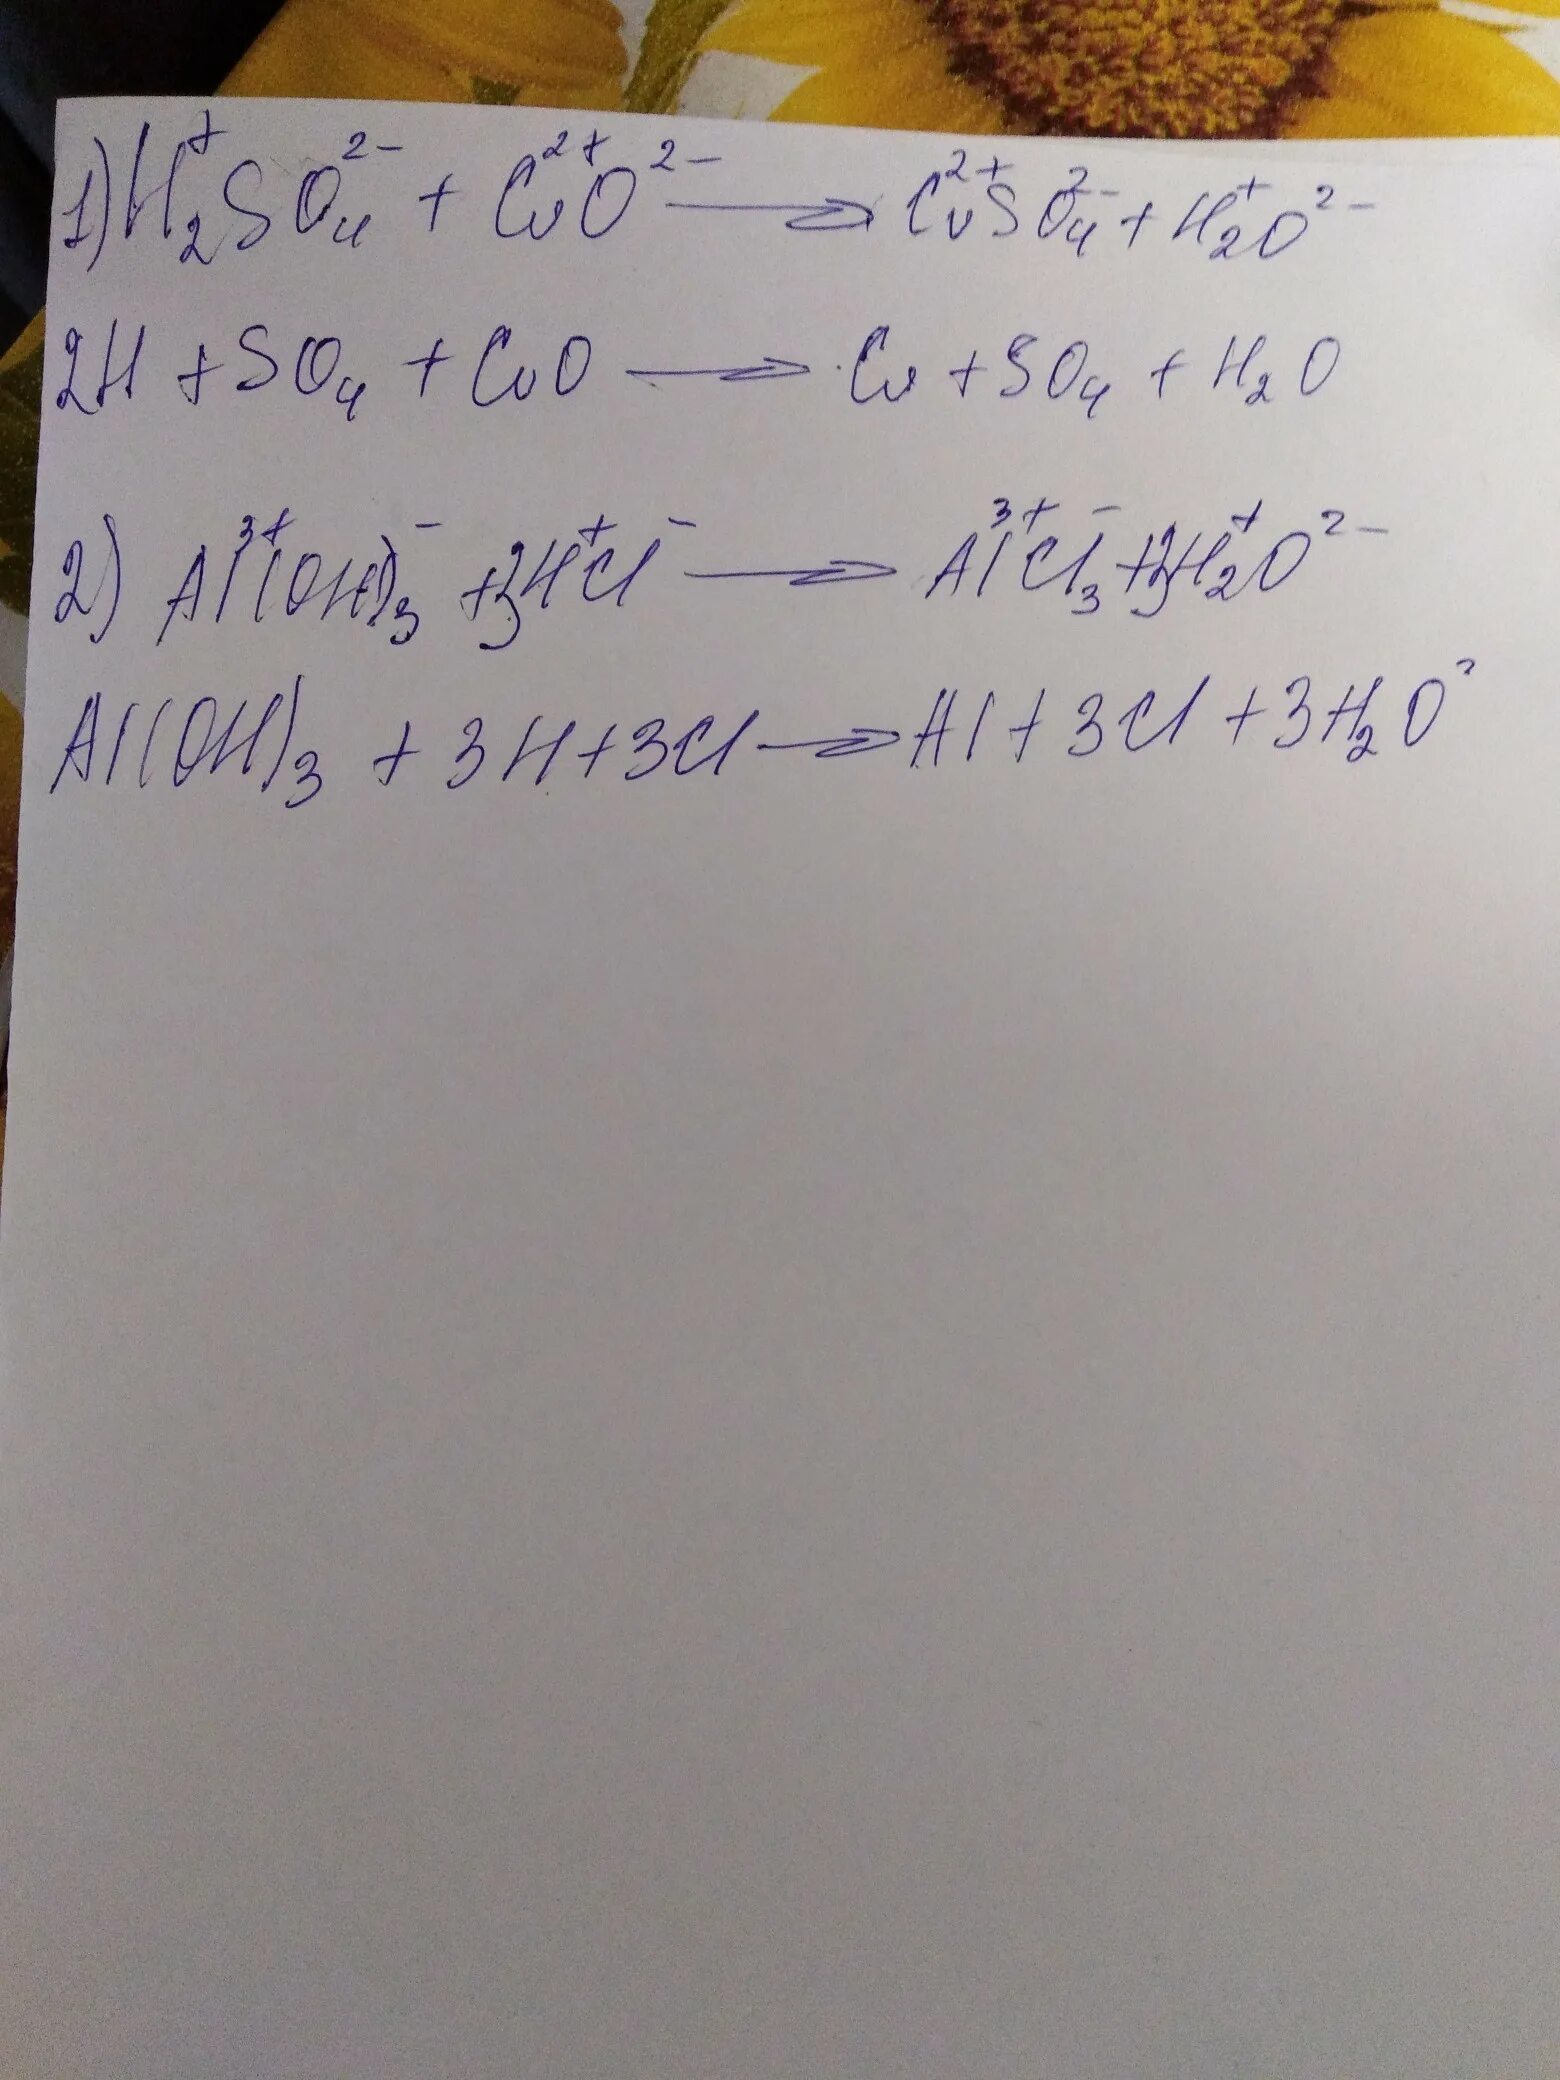 1) H₂⁺SO₄²⁻ + Cu²⁺O²⁻ → Cu²⁺SO₄²⁻ + H₂⁺O²⁻
2H + SO₄ + CuO → Cu + SO₄ + H₂O
2) Al³⁺(OH)₃⁻ + 3H⁺Cl⁻ → Al³⁺Cl₃⁻ + 3H₂⁺O²⁻
Al(OH)₃ + 3H + 3Cl → Al + 3Cl + 3H₂O